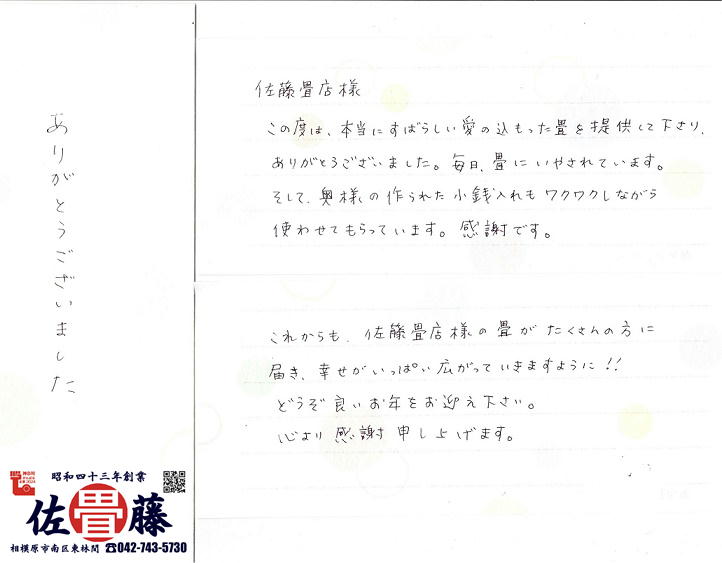 ありがとうございました
佐藤畳店様
この度は、本当にすばらしい愛の込もった畳を提供して下さり、
ありがとうございました。毎日、畳にいやされています。
そして、奥様の作られた小銭入れもワクワクしながら
使わせてもらっています。感謝です。
これからも、佐藤畳店様の畳がたくさんの方に
届き、幸せがいっぱい広がっていきますように!!
どうぞ良いお年をお迎え下さい。
心より感謝申し上げます。
昭和四十三年創業
佐畳藤
相模原市南区東林間 ☎042-743-5730